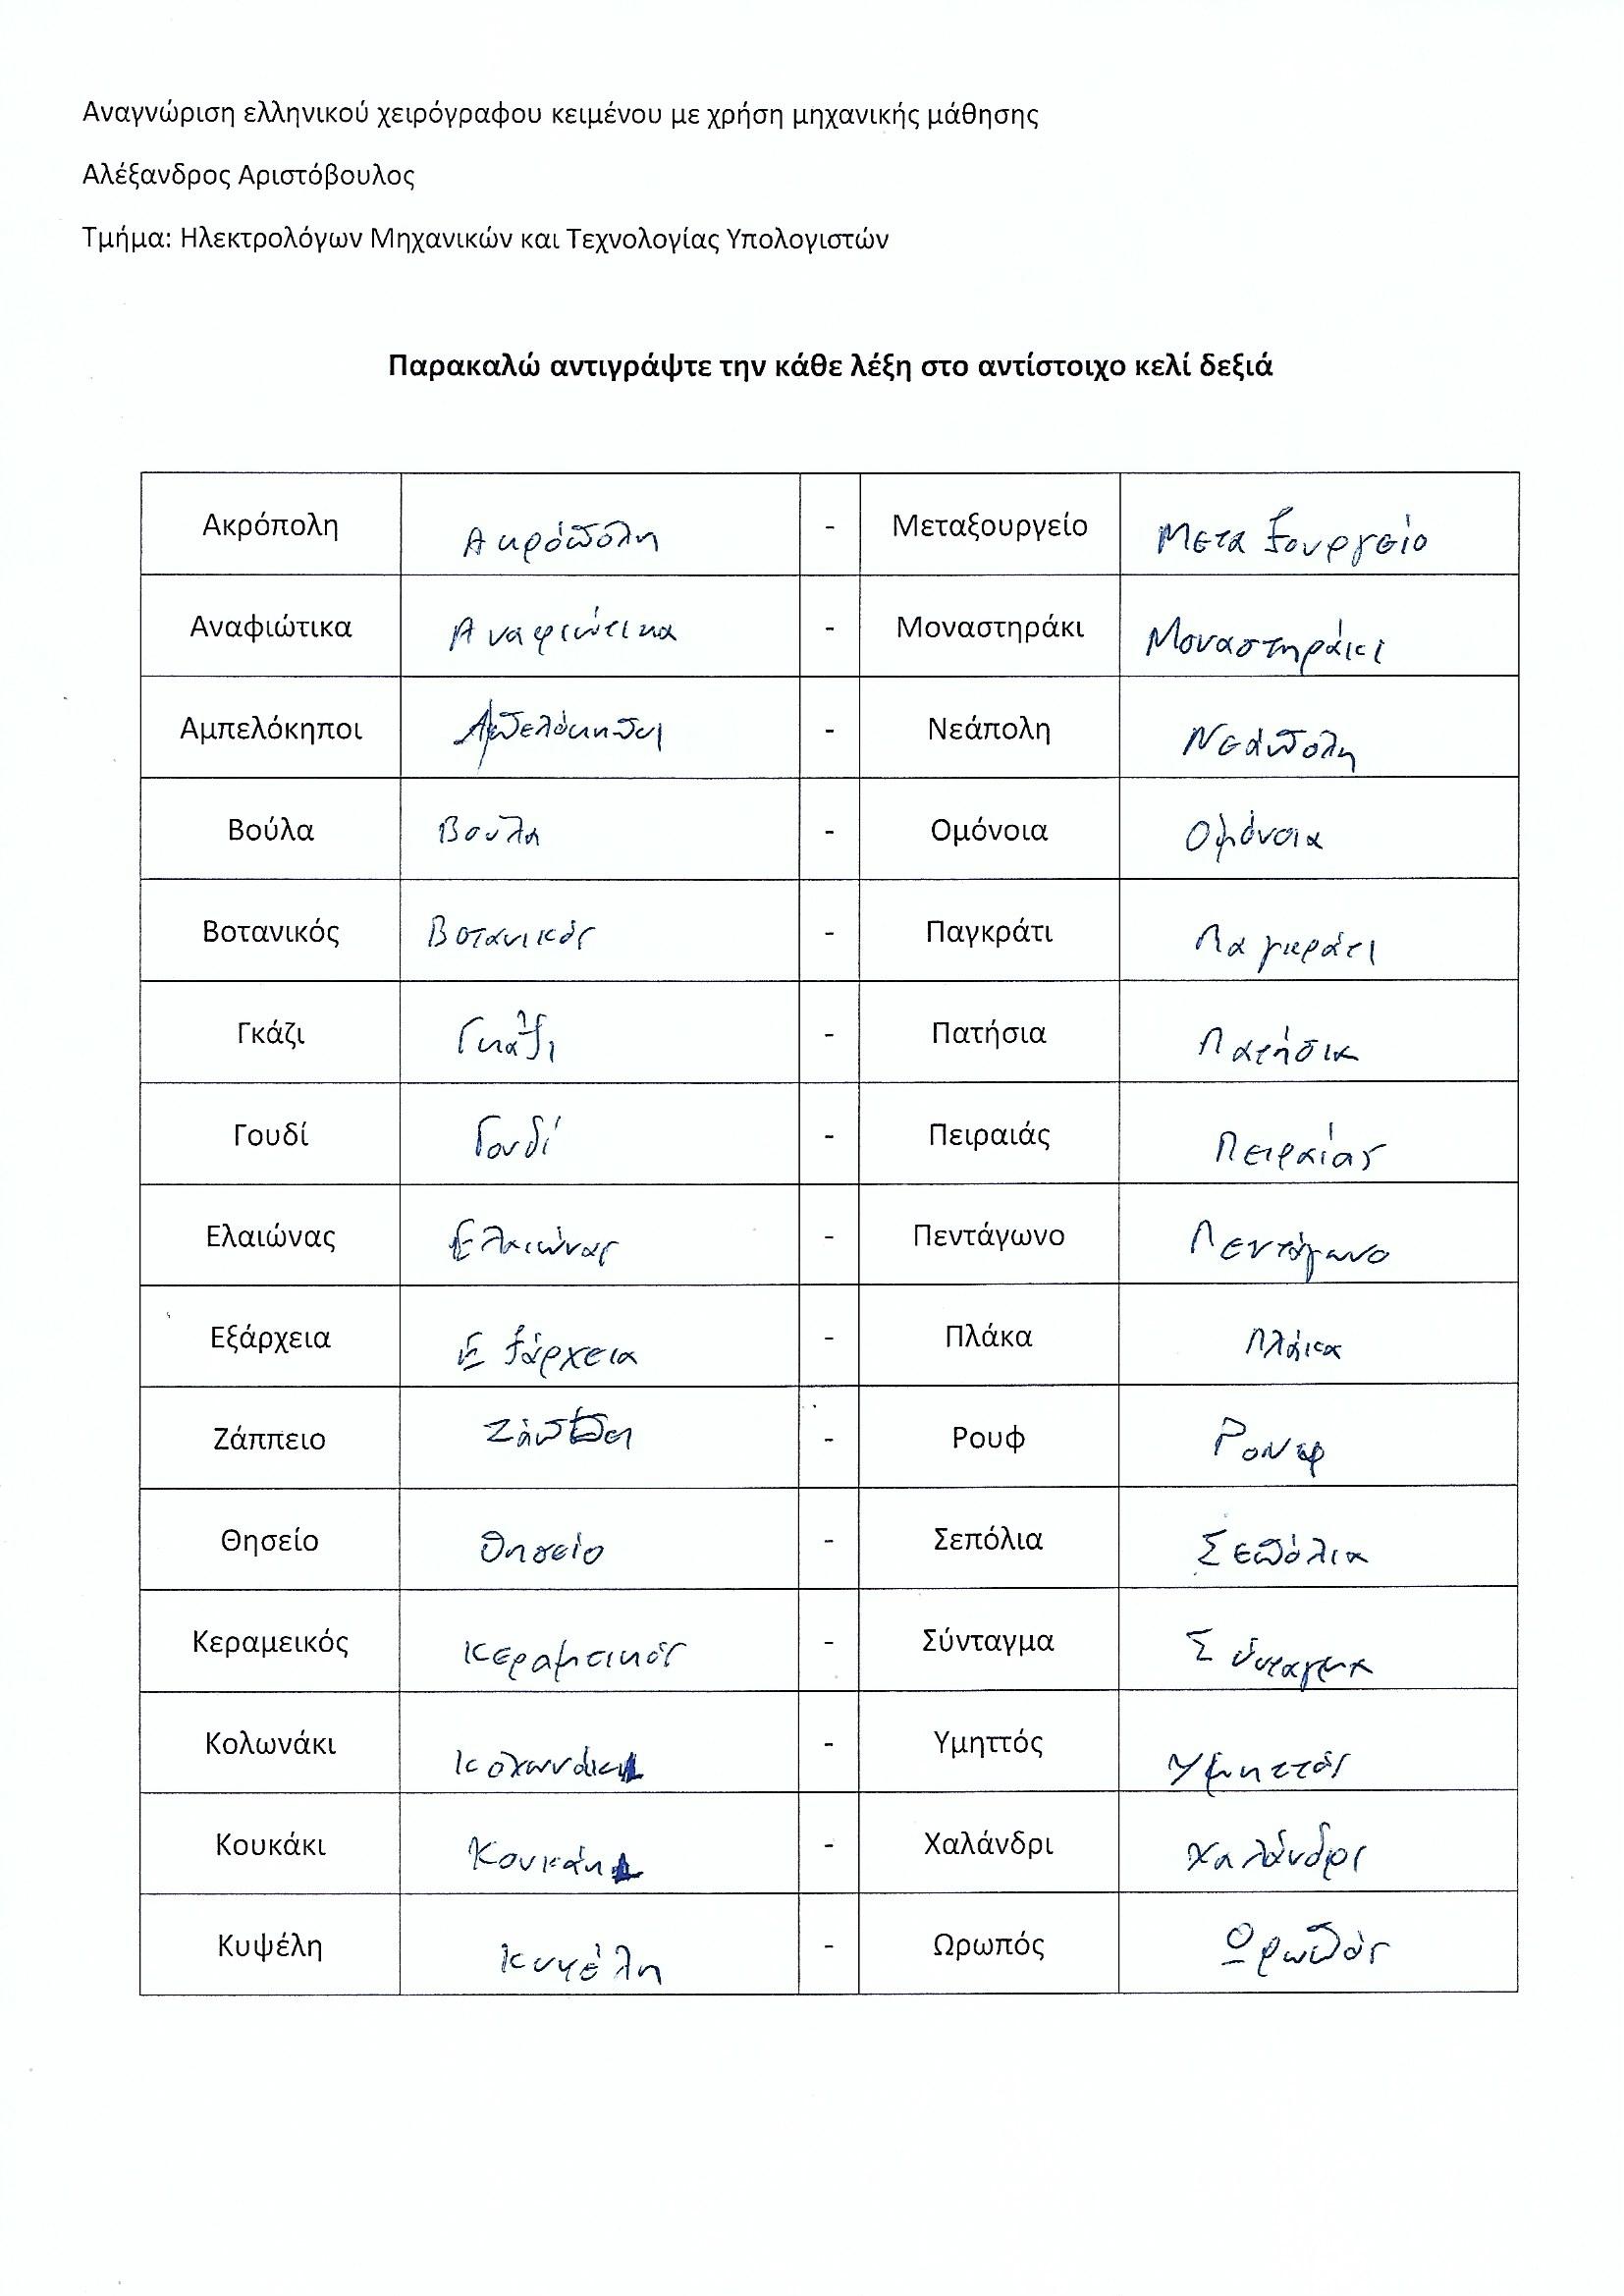 Αναγνώριση ελληνικού χειρόγραφου κειμένου με χρήση μηχανικής μάθησης
Αλέξανδρος Αριστόβουλος
Τμήμα: Ηλεκτρολόγων Μηχανικών και Τεχνολογίας Υπολογιστών
Παρακαλώ αντιγράψτε την κάθε λέξη στο αντίστοιχο κελί δεξιά
Ακρόπολη Ακρόπολη - Μεταξουργείο Μεταξουργείο
Αναφιώτικα Αναφιώτικα - Μοναστηράκι Μοναστηράκι
Αμπελόκηποι Αμπελόκηποι - Νεάπολη Νεάπολη
Βούλα Βούλα - Ομόνοια Ομόνοια
Βοτανικός Βοτανικός - Παγκράτι Παγκράτι
Γκάζι Γκάζι - Πατήσια Πατήσια
Γουδί Γουδί - Πειραιάς Πειραίας
Ελαιώνας Ελαιώνας - Πεντάγωνο Πεντάγωνο
Εξάρχεια Εξάρχεια - Πλάκα Πλάκα
Ζάππειο - Ρουφ Ρουφ
Θησείο Θησείο - Σεπόλια Σεπόλια
Κεραμεικός Κεραμεικός - Σύνταγμα Σύνταγμα
Κολωνάκι Κολωνάκι - Υμηττός Υμηττός
Κουκάκι Κουκάκι - Χαλάνδρι Χαλάνδρι
Κυψέλη Κυψέλη - Ωρωπός Ωρωπός